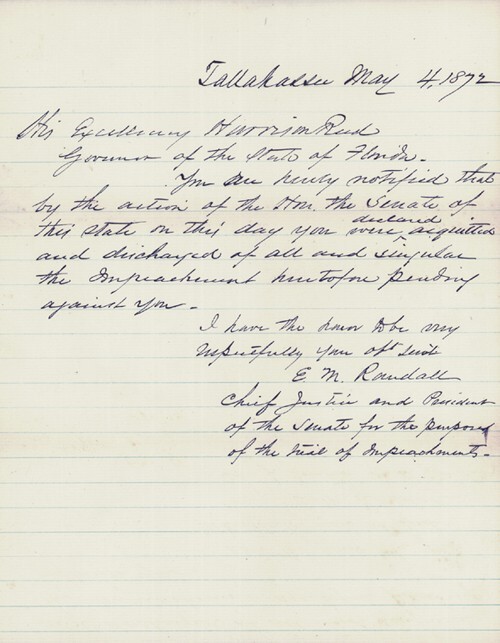 Tallahassee May 4, 1872
His Excellency Harrison Reed
Governor of the State of Florida.
You are hereby notified that
by the action of the Hon. the Senate of
this State on this day you were declared acquitted
and discharged of all and singular
the Impeachment heretofore pending
against you.
I have the honor to be very
respectfully your obt servt
E. M. Randall
Chief Justice and President
of the Senate for the purposes
of the trial of Impeachments.